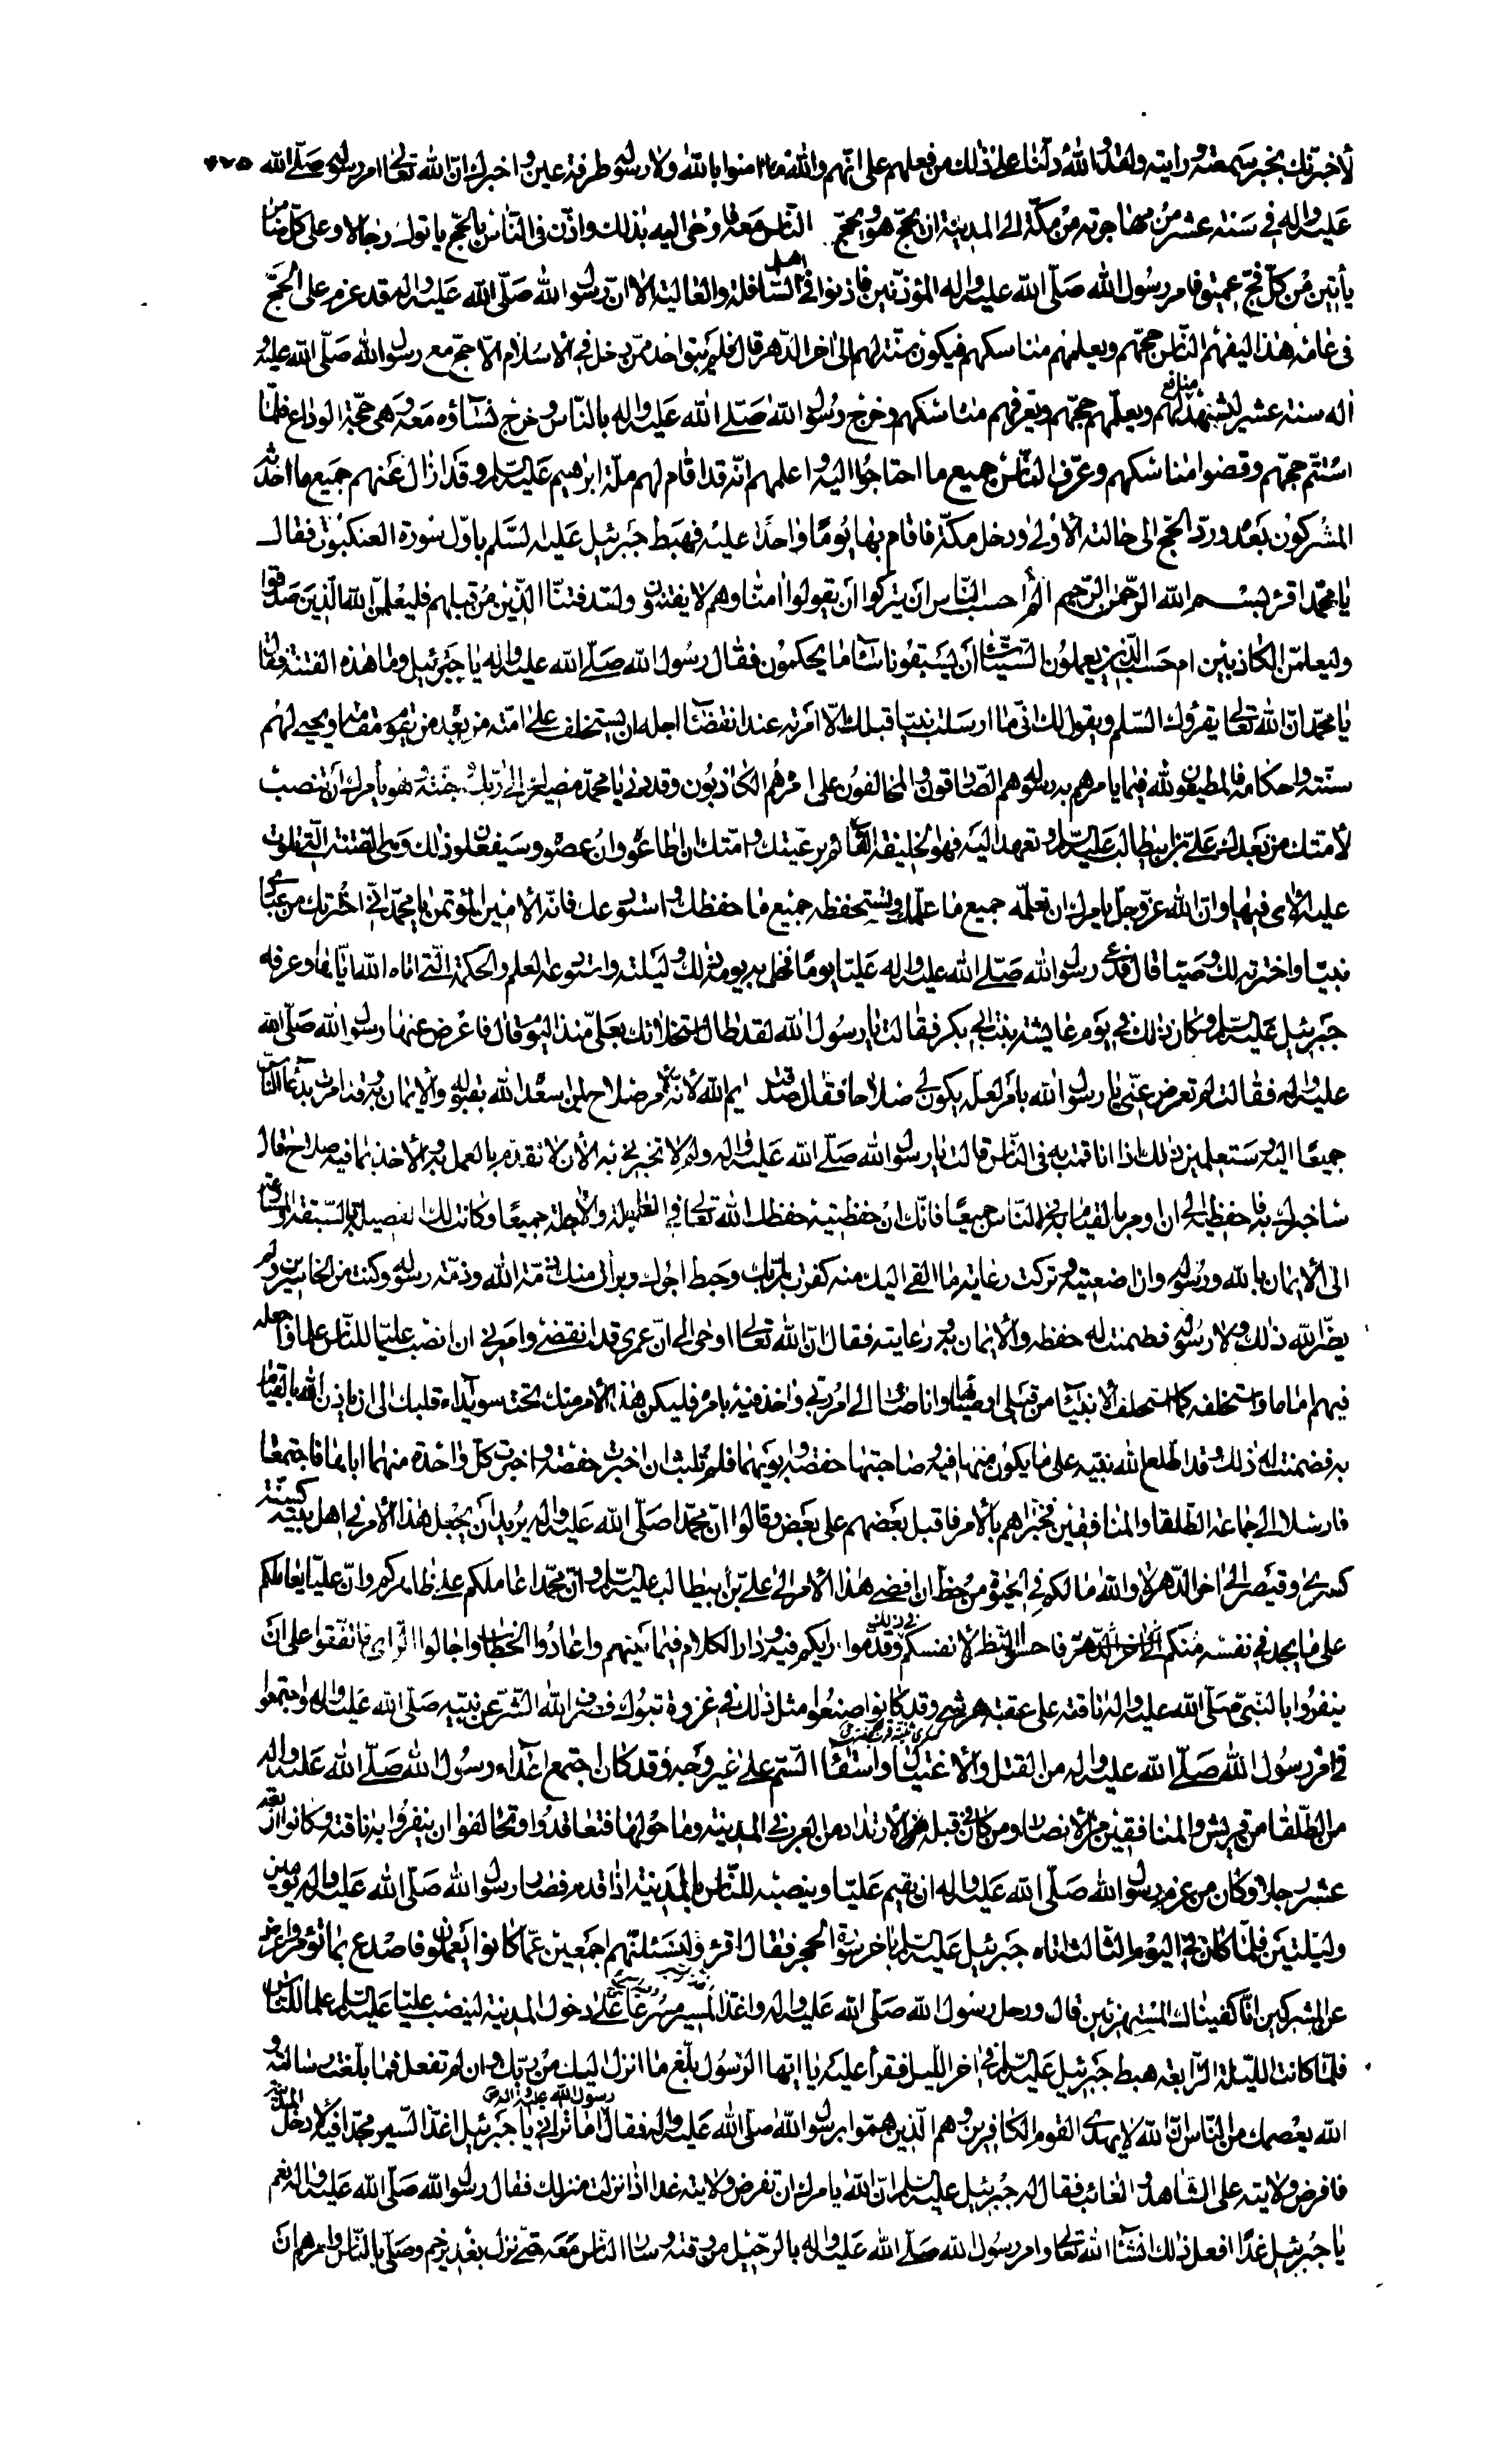 لأخبرنك بخبر سمعته ورأيته ولقد والله دلنا على ذلك من فعلهم على انهم والله ما امنوا بالله ولا رسوله طرفة عين واخبرك ان الله تعالى امر رسوله صلى الله ٤٢٥
عليه واله في سنة عشر من مهاجرته من مكة الى المدينة ان يحج هو ويحج الناس معه فاوحى اليه بذلك واذن في الناس بالحج ياتوك رجالا وعلى كل ضامر
يأتين من كل فج عميق فامر رسول الله صلى الله عليه واله المؤذنين فاذنوا في اهل السافلة والعالية الا ان رسول الله صلى الله عليه واله قد عزم على الحج
في عامه هذا ليفهم الناس حجهم ويعلمهم مناسكهم فيكون سنة لهم الى اخر الدهر قال فلم يبق احد ممن دخل في الاسلام الا حج مع رسول الله صلى الله عليه و
اله سنة عشر ليشهد لهم منافع ويعلمهم حجهم ويعرفهم مناسكهم وخرج رسول الله صلى الله عليه واله بالناس وخرج نساؤه معه وهي حجة الوداع فلما
استتم حجهم وقضوا مناسكهم وعرف الناس جميع ما احتاجوا اليه واعلمهم انه قد اقام لهم ملة ابرهيم عليه السلم وقد ازال عنهم جميع ما احدثه
المشركون بعده ورد الحج الى حالته الاولى ودخل مكة فاقام بها يوما واحدا عليه فهبط جبرئيل عليه السلم باول سورة العنكبوت فقال
يا محمد اقرء بسم الله الرحمن الرحيم الم احسب الناس ان يتركوا ان يقولوا امنا وهم لا يفتنون ولقد فتنا الذين من قبلهم فليعلمن الله الذين صدقوا
وليعلمن الكاذبين ام حسب الذين يعملون السيئات ان يسبقونا ساء ما يحكمون فقال رسول الله صلى الله عليه واله يا جبرئيل وما هذه الفتنة فقال
يا محمد ان الله تعالى يقرؤك السلم ويقول لك اني ما ارسلت نبيا قبلك الا امرته عند انقضاء اجله ان يستخلف على امته من بعده من يقوم مقامه ويحيي لهم
سنته واحكامه فالمطيعون لله فيما يامرهم به رسوله هم الصادقون والمخالفون على امره هم الكاذبون وقد دنى يا محمد مصيرك الى ربك وجنته وهو يأمرك ان تنصب
لامتك من بعدك علي بن ابيطالب عليه السلم وتعهد اليه فهو الخليفة القائم برعيتك وامتك ان اطاعوه وان عصوه وسيفعلون ذلك وهي الفتنة التي تلوت
عليه الاي فيها وان الله عز وجل يامرك ان تعلمه جميع ما علمك وتستحفظه جميع ما حفظك واستودعك فانه الامين المؤتمن يا محمد اني اخترتك من عبادي
نبيا واخترته لك وصيا قال فدعى رسول الله صلى الله عليه واله عليا يوما فخلا به يومه ذلك وليلته واستودعه العلم والحكمة التي اتاه الله اياها وعرفه
جبرئيل عليه السلم وكان ذلك في يوم عايشة بنت ابي بكر فقالت يا رسول الله لقد طال استخلاؤك بعلي منذ اليوم قال فاعرض عنها رسول الله صلى الله
عليه واله فقالت لم تعرض عني يا رسول الله بامر لعله يكون لي صلاحا فقال صدقت ايم الله لانه لامر صلاح لمن اسعده الله بقبوله والايمان به وقد امرت بدعاء الناس
جميعا اليه وستعلمين ذلك اذا انا قمت به في الناس قالت يا رسول الله صلى الله عليه واله ولم لا تخبرني به الان لاتقدم بالعمل به والاخذ بما فيه صلاح قال
ساخبرك به فاحفظيه الى ان اومر بالقيام به في الناس جميعا فانك ان حفظتيه حفظك الله تعالى في العاجلة والاجلة جميعا وكانت لك الفضيلة بالسبقة والمسارعة
الى الايمان بالله ورسوله وان اضعتيه وتركت رعاية ما القى اليك منه كفرت بربك وحبط اجرك وبرات منك ذمة الله وذمة رسوله وكنت من الخاسرين ولم
يضر الله ذلك ولا رسوله فضمنت له حفظه والايمان به ورعايته فقال ان الله تعالى اوحى الي ان عمري قد انقضى وامرني ان انصب عليا للناس علما واجعله
فيهم اماما واستخلفه كما استخلف الانبياء من قبلي اوصيائها وانا صائر الى امر ربي واخذ فيه بامره فليكن هذا الامر منك تحت سويداء قلبك الى ان ياذن الله بالقيام
به فضمنت له ذلك وقد اطلع الله نبيه على ما يكون منها فيه ومن صاحبتها حفصة وابويهما فلم تلبث ان اخبرت حفصة واخبرت كل واحدة منهما اباها فاجتمعا
فارسلا الى جماعة الطلقاء والمنافقين فخبراهم بالامر فاقبل بعضهم على بعض وقالوا ان محمدا صلى الله عليه واله يريد ان يجعل هذا الامر في اهل بيته كسنة
كسرى وقيصر الى اخر الدهر ولا والله ما لكم في الحيوة من حظ ان افضى هذا الامر الى علي بن ابيطالب عليه السلم وان محمدا عاملكم على ظاهركم وان عليا يعاملكم
على ما يجد في نفسه منكم الى اخر الدهر فاحسنوا النظر لانفسكم في ذلك وقدموا رايكم فيه ودار الكلام فيما بينهم واعادوا الخطاب واجالوا الراي فاتفقوا على ان
ينفروا بالنبي صلى الله عليه واله ناقته على عقبة هرشى وقد كانوا صنعوا مثل ذلك في غزوة تبوك فصرف الله الشر عن نبيه صلى الله عليه واله واجتمعوا
في امر رسول الله صلى الله عليه واله من القتل والاغتيال واستقاء السم على غير وجه وقد كان اجتمع اعداء رسول الله صلى الله عليه واله
من الطلقاء من قريش والمنافقين من الانصار ومن كان في قبله الارتداد من العرب في المدينة وما حولها فتعاقدوا وتحالفوا ان ينفروا به ناقته وكانوا اربعة
عشر رجلا وكان من عزم رسول الله صلى الله عليه واله ان يقيم عليا وينصبه للناس بالمدينة اذا قدم فسار رسول الله صلى الله عليه واله يومين
وليلتين فلما كان في اليوم الثالث اتاه جبرئيل عليه السلم باخر سورة الحجر فقال اقرء ولنسئلنهم اجمعين عما كانوا يعملون فاصدع بما تؤمر واعرض
عن المشركين انا كفيناك المستهزئين قال ورحل رسول الله صلى الله عليه واله واغذ المسير مسرعا على دخول المدينة لينصب عليا عليه السلم علما للناس
فلما كانت الليلة الرابعة هبط جبرئيل عليه السلم في اخر الليل فقرأ عليه يا ايها الرسول بلغ ما انزل اليك من ربك وان لم تفعل فما بلغت رسالته و
الله يعصمك من الناس ان الله لا يهدي القوم الكافرين وهم الذين هموا برسول الله صلى الله عليه واله فقال رسول الله عليه واله اما تراني يا جبرئيل اغذ السير مجدا فيه لادخل المدينة
فافرض ولايته على الشاهد والغائب فقال له جبرئيل عليه السلم ان الله يامرك ان تفرض ولايته غدا اذا نزلت منزلك فقال رسول الله صلى الله عليه واله نعم
يا جبرئيل غدا افعل ذلك انشاء الله تعالى وامر رسول الله صلى الله عليه واله بالرحيل من وقته وسار الناس معه حتى نزل بغدير خم وصلى بالناس وامرهم ان